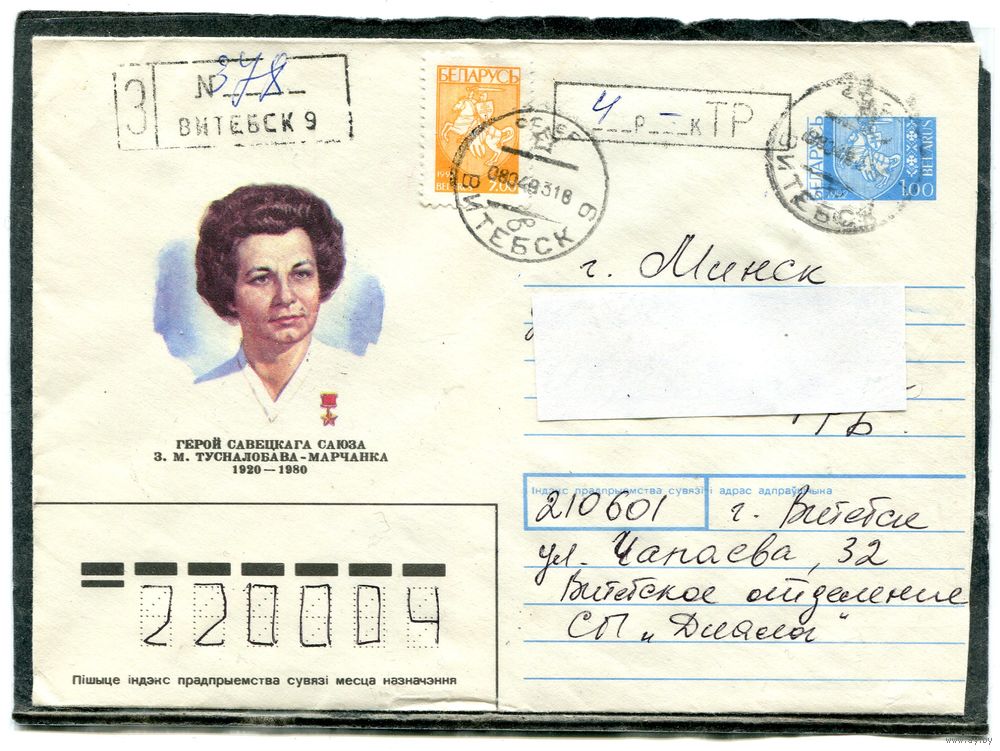 З
№ 378
ВИТЕБСК 9
БЕЛАРУСЬ
BELARUS 7.00
4 – ТР
р к
ВИТЕБСК 9
080493 18
БЕЛАРУСЬ
1992
1.00 BELARUS
ВИТЕБСК
г. Минск
ГЕРОЙ САВЕЦКАГА САЮЗА
З. М. ТУСНАЛОБАВА-МАРЧАНКА
1920—1980
Індэкс прадпрыемства сувязі і адрас адпраўшчыка
210601 г. Витебск
ул. Чапаева, 32
Витебское отделение
СП „Диалог"
220004
Пішыце індэкс прадпрыемства сувязі месца назначэння
www.ay.by